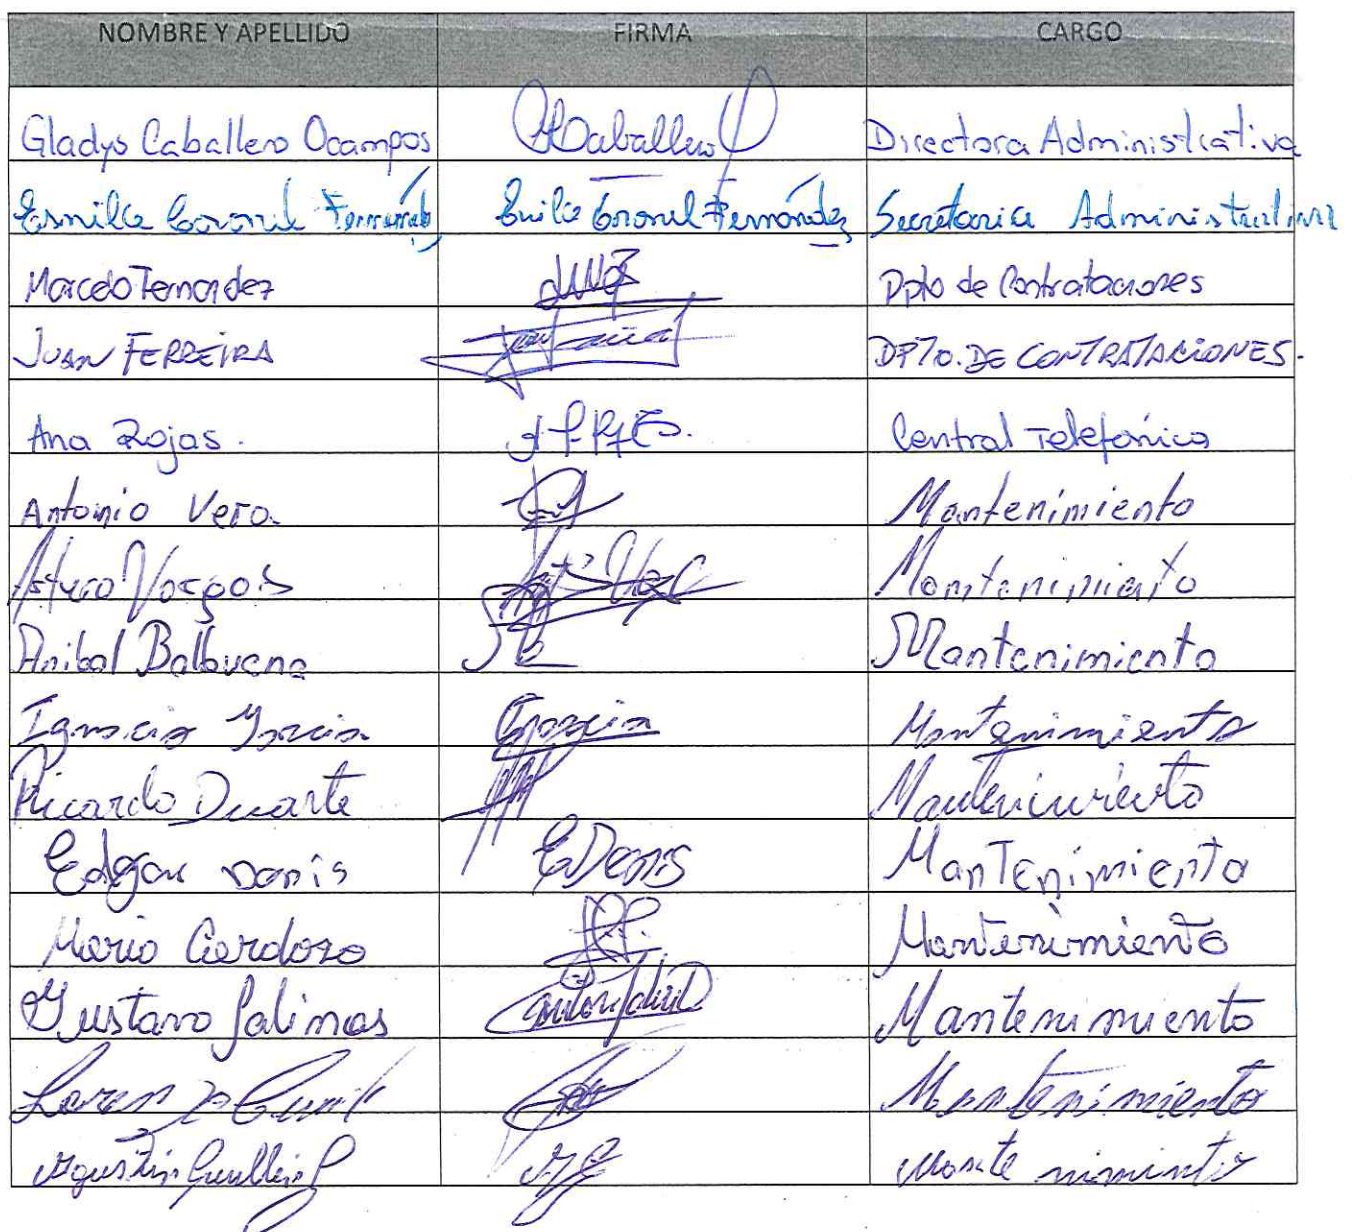 NOMBRE Y APELLIDO FIRMA CARGO
Gladys Caballero Ocampos GCaballero Directora Administrativa
Esmilce Coronil Fernández Emilce Coronel Fernández Secretaria Administrativa
Marcelo Fernandez Dpto de Contrataciones
JUAN FERREIRA DPTO. DE CONTRATACIONES.
Ana Rojas. Central Telefónica
Antonio Vera. Mantenimiento
Arturo Vargas Mantenimiento
Anibal Balbuena Mantenimiento
Ignacio Garcia Garcia Mantenimiento
Ricardo Duarte Mantenimiento
Edgar Denis EDenis Mantenimiento
Mario Cardozo Mantenimiento
Gustavo Salinas Mantenimiento
Lorenzo Mantenimiento
Agustin Mantenimiento